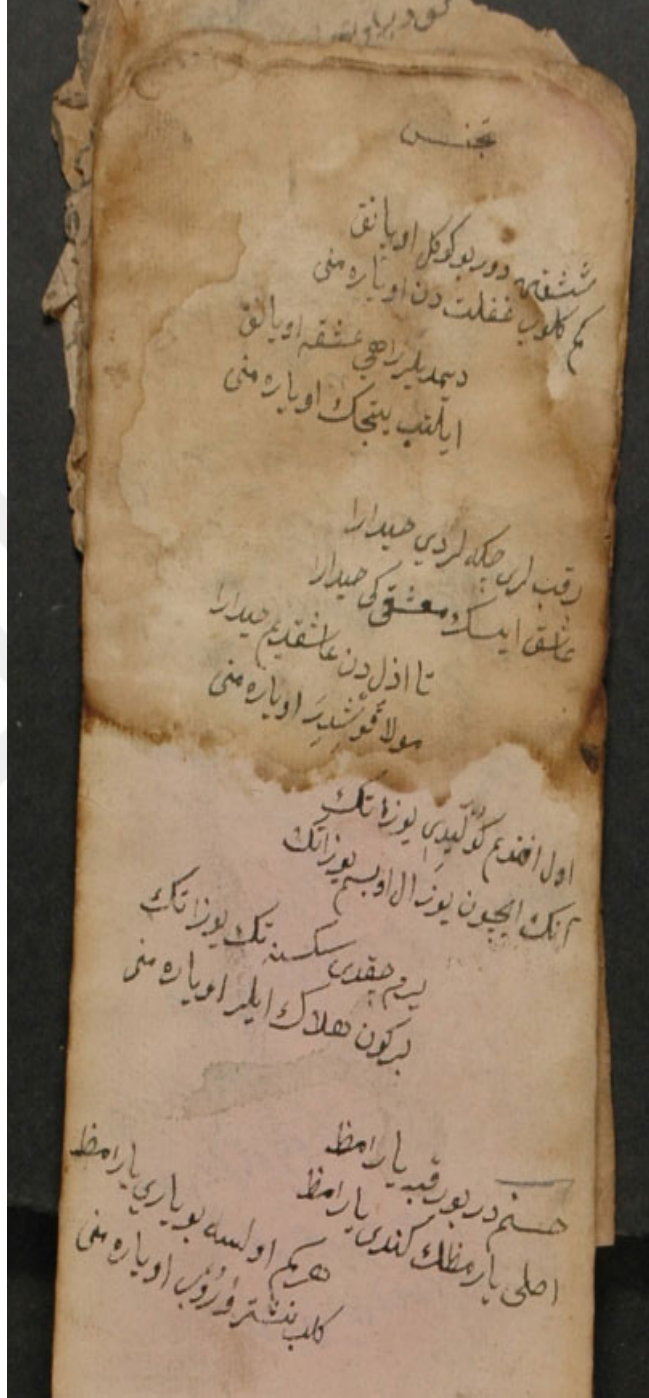 تجنيس
عشقه دور بو كوكل اويانق
كم كلوب غفلت دن اوياره منى
ديمديلر راهي عشقه اويانق
ايلتب يتجك اوياره منى
رقب لرى چكه لردي حيدارا
عاشق ايسك معشقى كى حيدارا
تا اذل دن عاشقديم حيدارا
مولا قوشدر اوياره منى
اول افندم يوزاتك
آنك ايچون يوز ال اوپسم يوزاتك
يرم چقدى سكسنه تك يوزاتك
بركون هلاك ايلر اوياره منى
حسنم در بو رقبه يارامظ
اصلى يارمظك كندى يارامظ
هركم اولسه بو يارى يارامظ
كلب نشتر اوياره منى